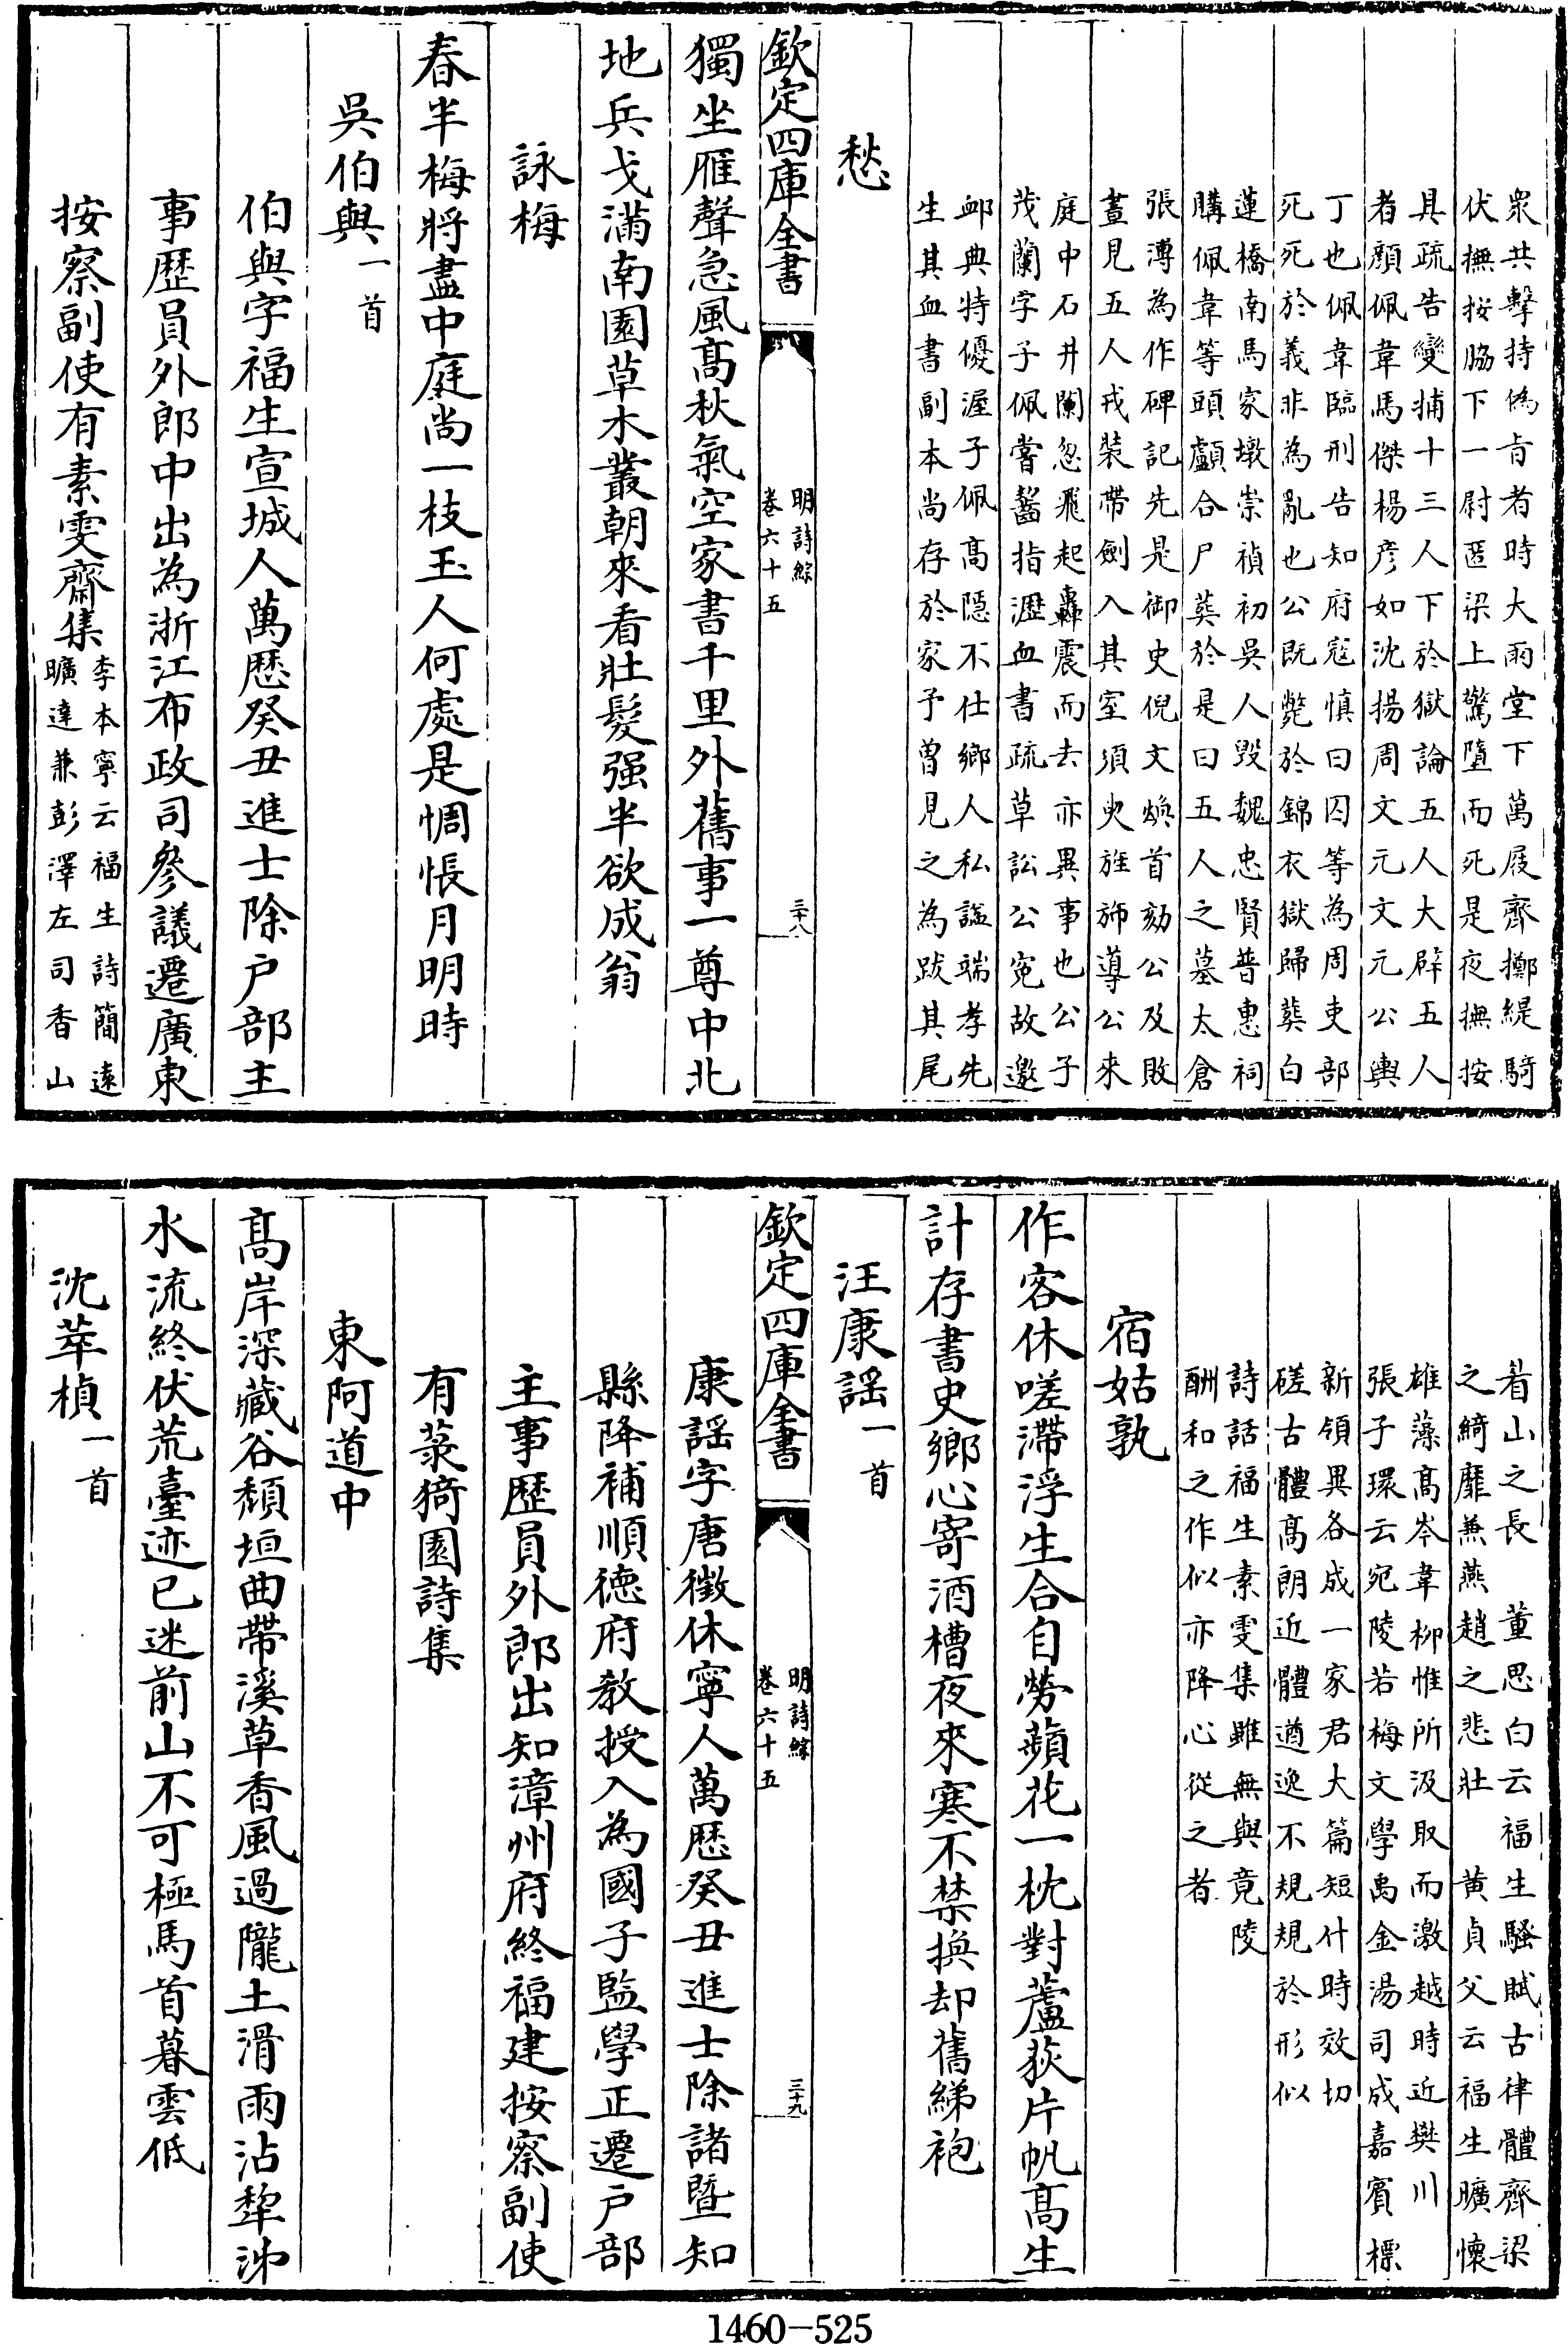 衆共擊持偽旨者時大雨堂下萬屐齊擲緹騎
伏撫按脇下一尉匿梁上驚墮而死是夜撫按
具疏告變捕十三人下於獄論五人大辟五人
者顔佩韋馬傑楊彦如沈揚周文元文元公輿
丁也佩韋臨刑告知府寇慎曰囚等為周吏部
死死於義非為亂也公既斃於錦衣獄歸葬白
蓮橋南馬家墩崇禎初吳人毀魏忠賢普惠祠
購佩韋等頭顱合尸葬於是曰五人之墓太倉
張溥為作碑記先是御史倪文煥首劾公及敗
晝見五人戎裝帶劍入其室須臾旌斾導公來
庭中石井闌忽飛起轟震而去亦異事也公子
茂蘭字子佩嘗齧指瀝血書疏草訟公寃故邀
䘏典特優渥子佩髙隠不仕鄉人私諡端孝先
生其血書副本尚存於家予曽見之為跋其尾
愁
欽定四庫全書
明詩綜
卷六十五
三十八
獨坐雁聲急風髙秋氣空家書千里外舊事一尊中北
地兵戈滿南園草木叢朝來看壯髮强半欲成翁
詠梅
春半梅將盡中庭尚一枝玉人何處是惆悵月明時
吳伯與一首
伯與字福生宣城人萬歴癸丑進士除户部主
事歴員外郎中出為浙江布政司參議遷廣東
按察副使有素雯齋集
李本寧云福生詩簡遠
曠達兼彭澤左司香山
眉山之長 董思白云福生騷賦古律體齊梁
之綺靡兼燕趙之悲壯 黄貞父云福生曠懷
雄藻髙岑韋柳惟所汲取而激越時近樊川
張子環云宛陵若梅文學禹金湯司成嘉賓標
新領異各成一家君大篇短什時效切
磋古體髙朗近體遒逸不規規於形似
詩話福生素雯集雖無與竟陵
酬和之作似亦降心從之者
宿姑孰
作客休嗟滯浮生合自勞蘋花一枕對蘆荻片帆髙生
計存書史鄉心寄酒槽夜來寒不禁換却舊綈袍
汪康謡一首
欽定四庫全書
明詩綜
卷六十五
三十九
康謡字唐徴休寧人萬歴癸丑進士除諸暨知
縣降補順德府教授入為國子監學正遷户部
主事歴員外郎出知漳州府終福建按察副使
有菉猗園詩集
東阿道中
髙岸深藏谷頽垣曲帶溪草香風過隴土滑雨沾犂沛
水流終伏荒臺迹已迷前山不可極馬首暮雲低
沈萃楨一首
1460-525